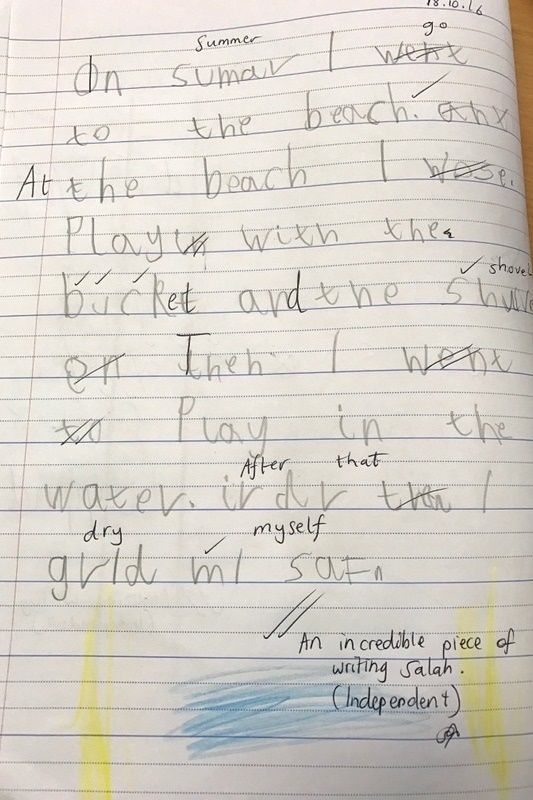 18.10.16
Summer go
On sumar I went
to the beach. anx
At the beach I wose.
Playin with the
shovel
bucket and the shuve
en Then I went
to Play in the
After that
water. irdr then I
dry myself
grid mi satn
An incredible piece of
writing Salah.
(Independent)